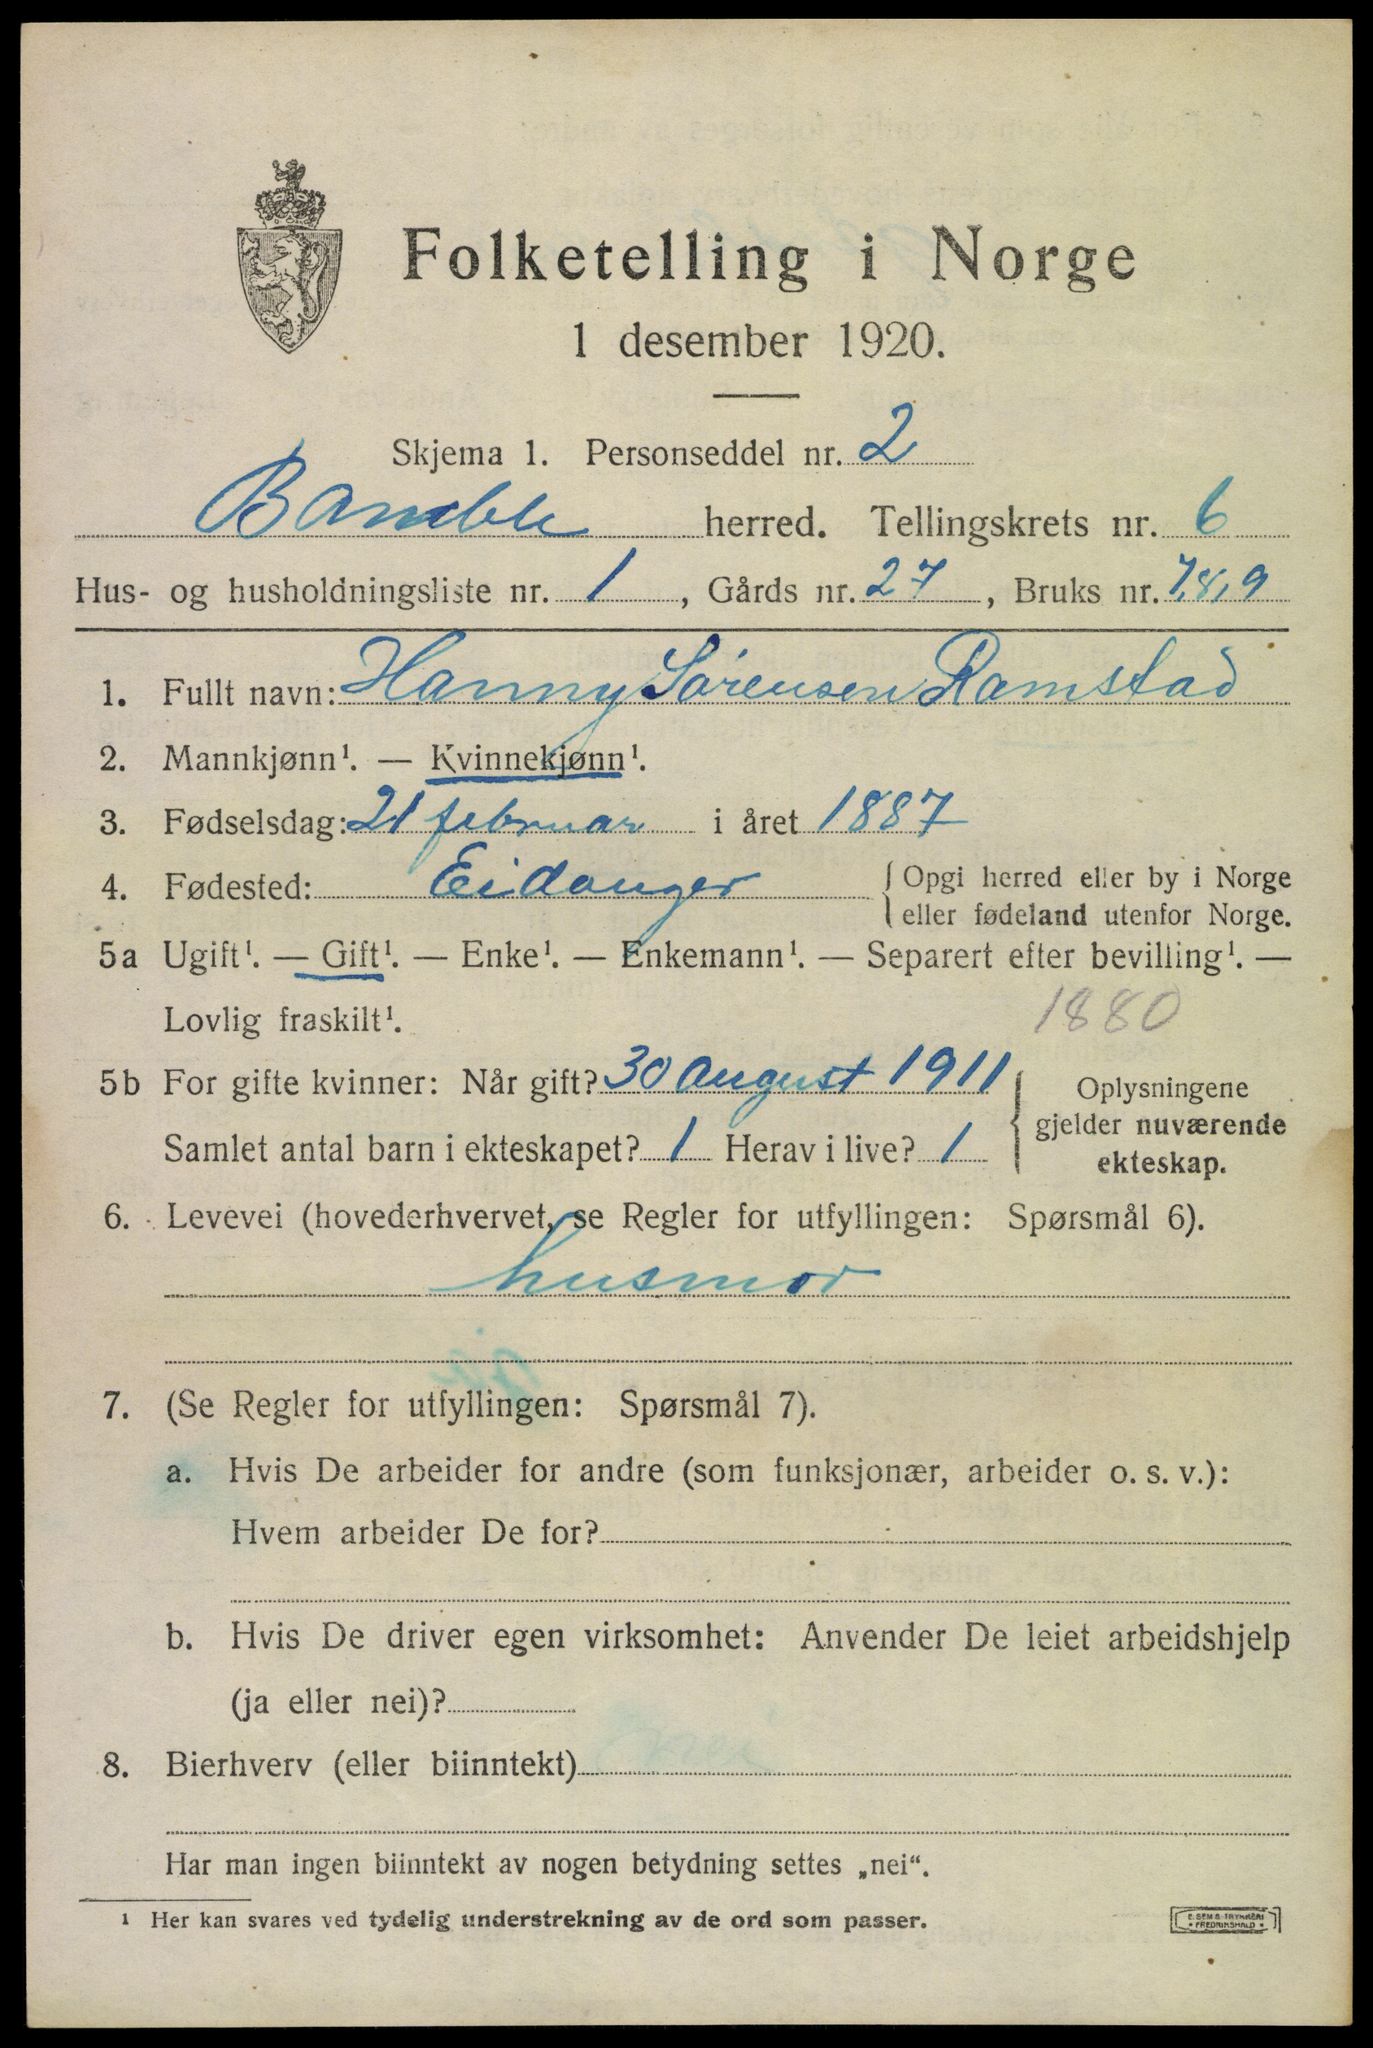 Folketelling i Norge
1 desember 1920.
Skjema 1. Personseddel nr. 2
Bamble herred. Tellingskrets nr. 6
Hus- og husholdningsliste nr. 1, Gårds nr. 27, Bruks nr. 7,8,9
1. Fullt navn: Hanny Sørensen Ramstad
2. Mannkjønn¹. — Kvinnekjønn¹.
3. Fødselsdag: 21 februar i året 1887
4. Fødested: Eidanger { Opgi herred eller by i Norge
eller fødeland utenfor Norge.
5a Ugift¹. — Gift¹. — Enke¹. — Enkemann¹. — Separert efter bevilling¹. —
Lovlig fraskilt¹. 1880
5b For gifte kvinner: Når gift? 30 august 1911
Samlet antal barn i ekteskapet? 1 Herav i live? 1
{ Oplysningene
gjelder nuværende
ekteskap.
6. Levevei (hovederhvervet, se Regler for utfyllingen: Spørsmål 6).
husmor
7. (Se Regler for utfyllingen: Spørsmål 7).
a. Hvis De arbeider for andre (som funksjonær, arbeider o. s. v.):
Hvem arbeider De for?
b. Hvis De driver egen virksomhet: Anvender De leiet arbeidshjelp
(ja eller nei)?
8. Bierhverv (eller biinntekt)
Har man ingen biinntekt av nogen betydning settes „nei“.
¹ Her kan svares ved tydelig understrekning av de ord som passer.
E. SEM S TRYKKERI
• FREDRIKSHALD •